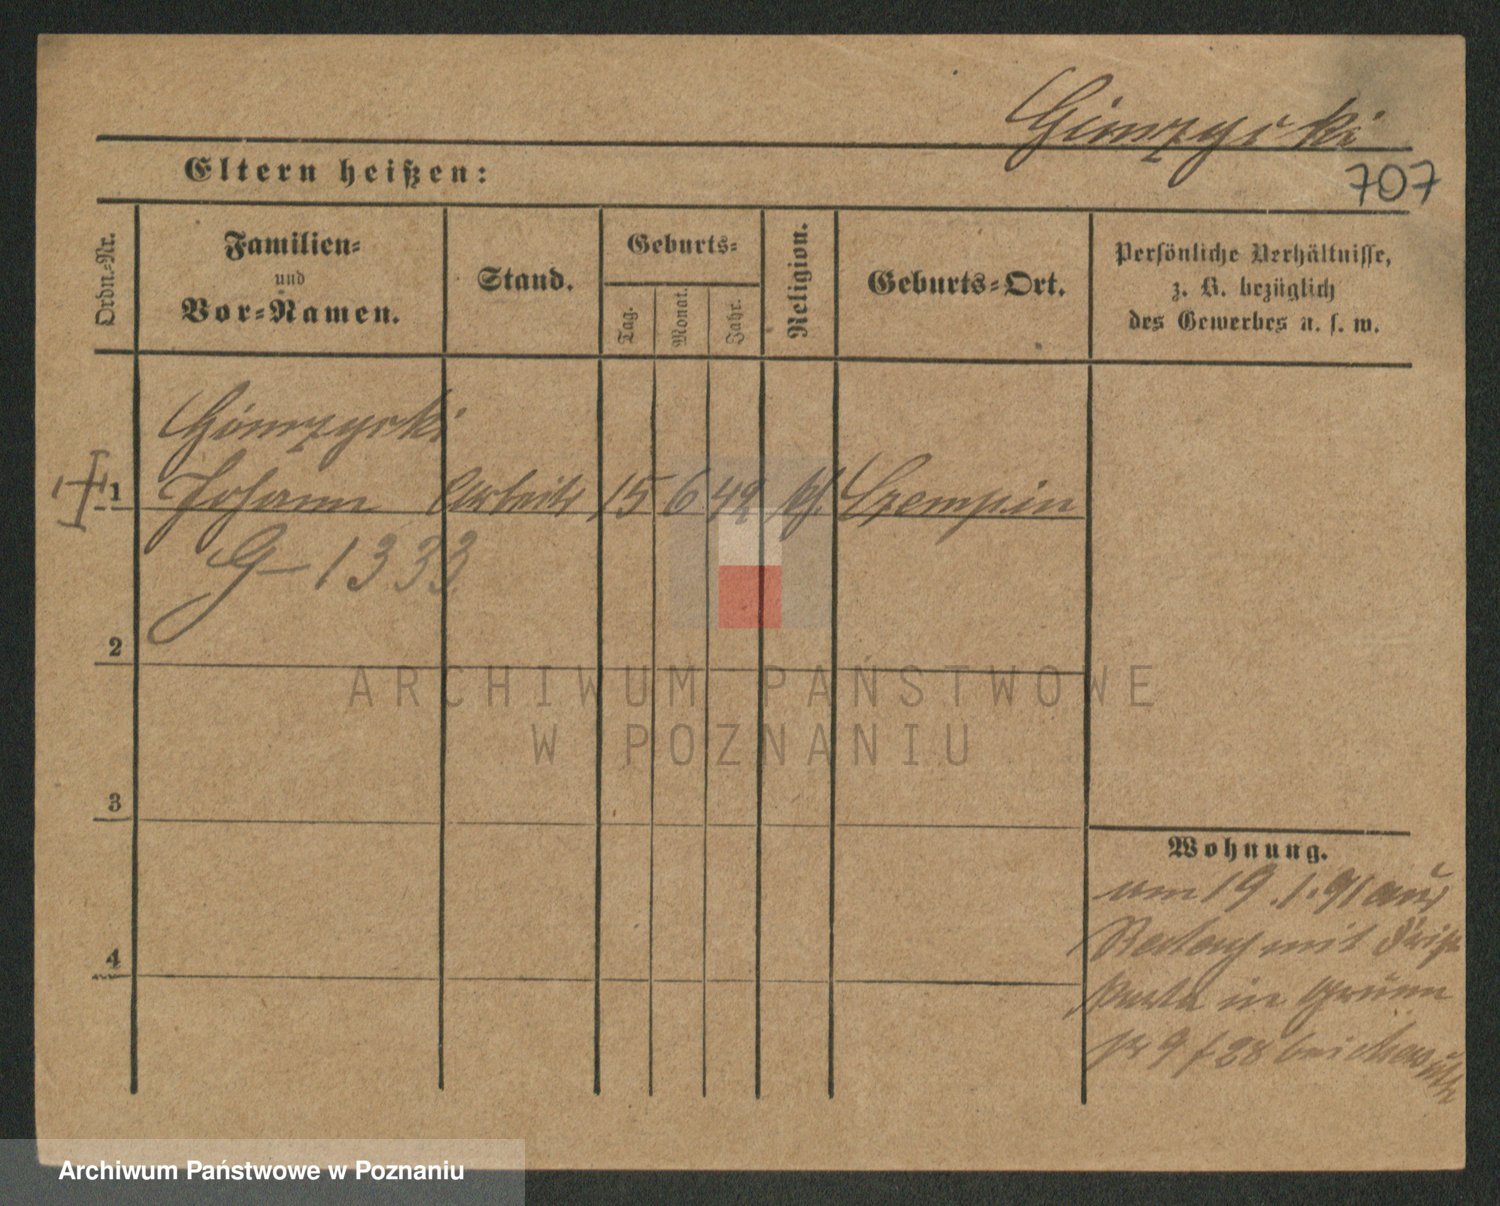 Gimzycki
707
Eltern heißen:
Ordn.-Nr.
Familien-
und
Vor-Namen.
Stand.
Geburts-
Tag.
Monat.
Jahr.
Religion.
Geburts-Ort.
Persönliche Verhältnisse,
z. B. bezüglich
des Gewerbes u. s. w.
Gimzycki
1 Johann Arbeiter 15 6 42 kath. Czempin
G-1333
2
3
4
Wohnung.
am 19.1.91 aus
mit
in
9 f 28 bei
ARCHIWUM PAŃSTWOWE
W POZNANIU
Archiwum Państwowe w Poznaniu